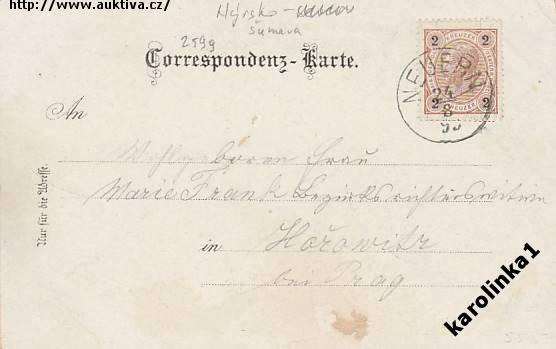 http://www.auktiva.cz/
Nýrsko -
Šumava
2599
Correspondenz-Karte.
2 KREUZER 2
2 KREUZER 2
NEUERN
24
8
An
Wohlgeboren Frau
Marie Frank Bezirksrichterswitwe
in Hořowitz
bei Prag
Nur für die Adresse.
karolinka1